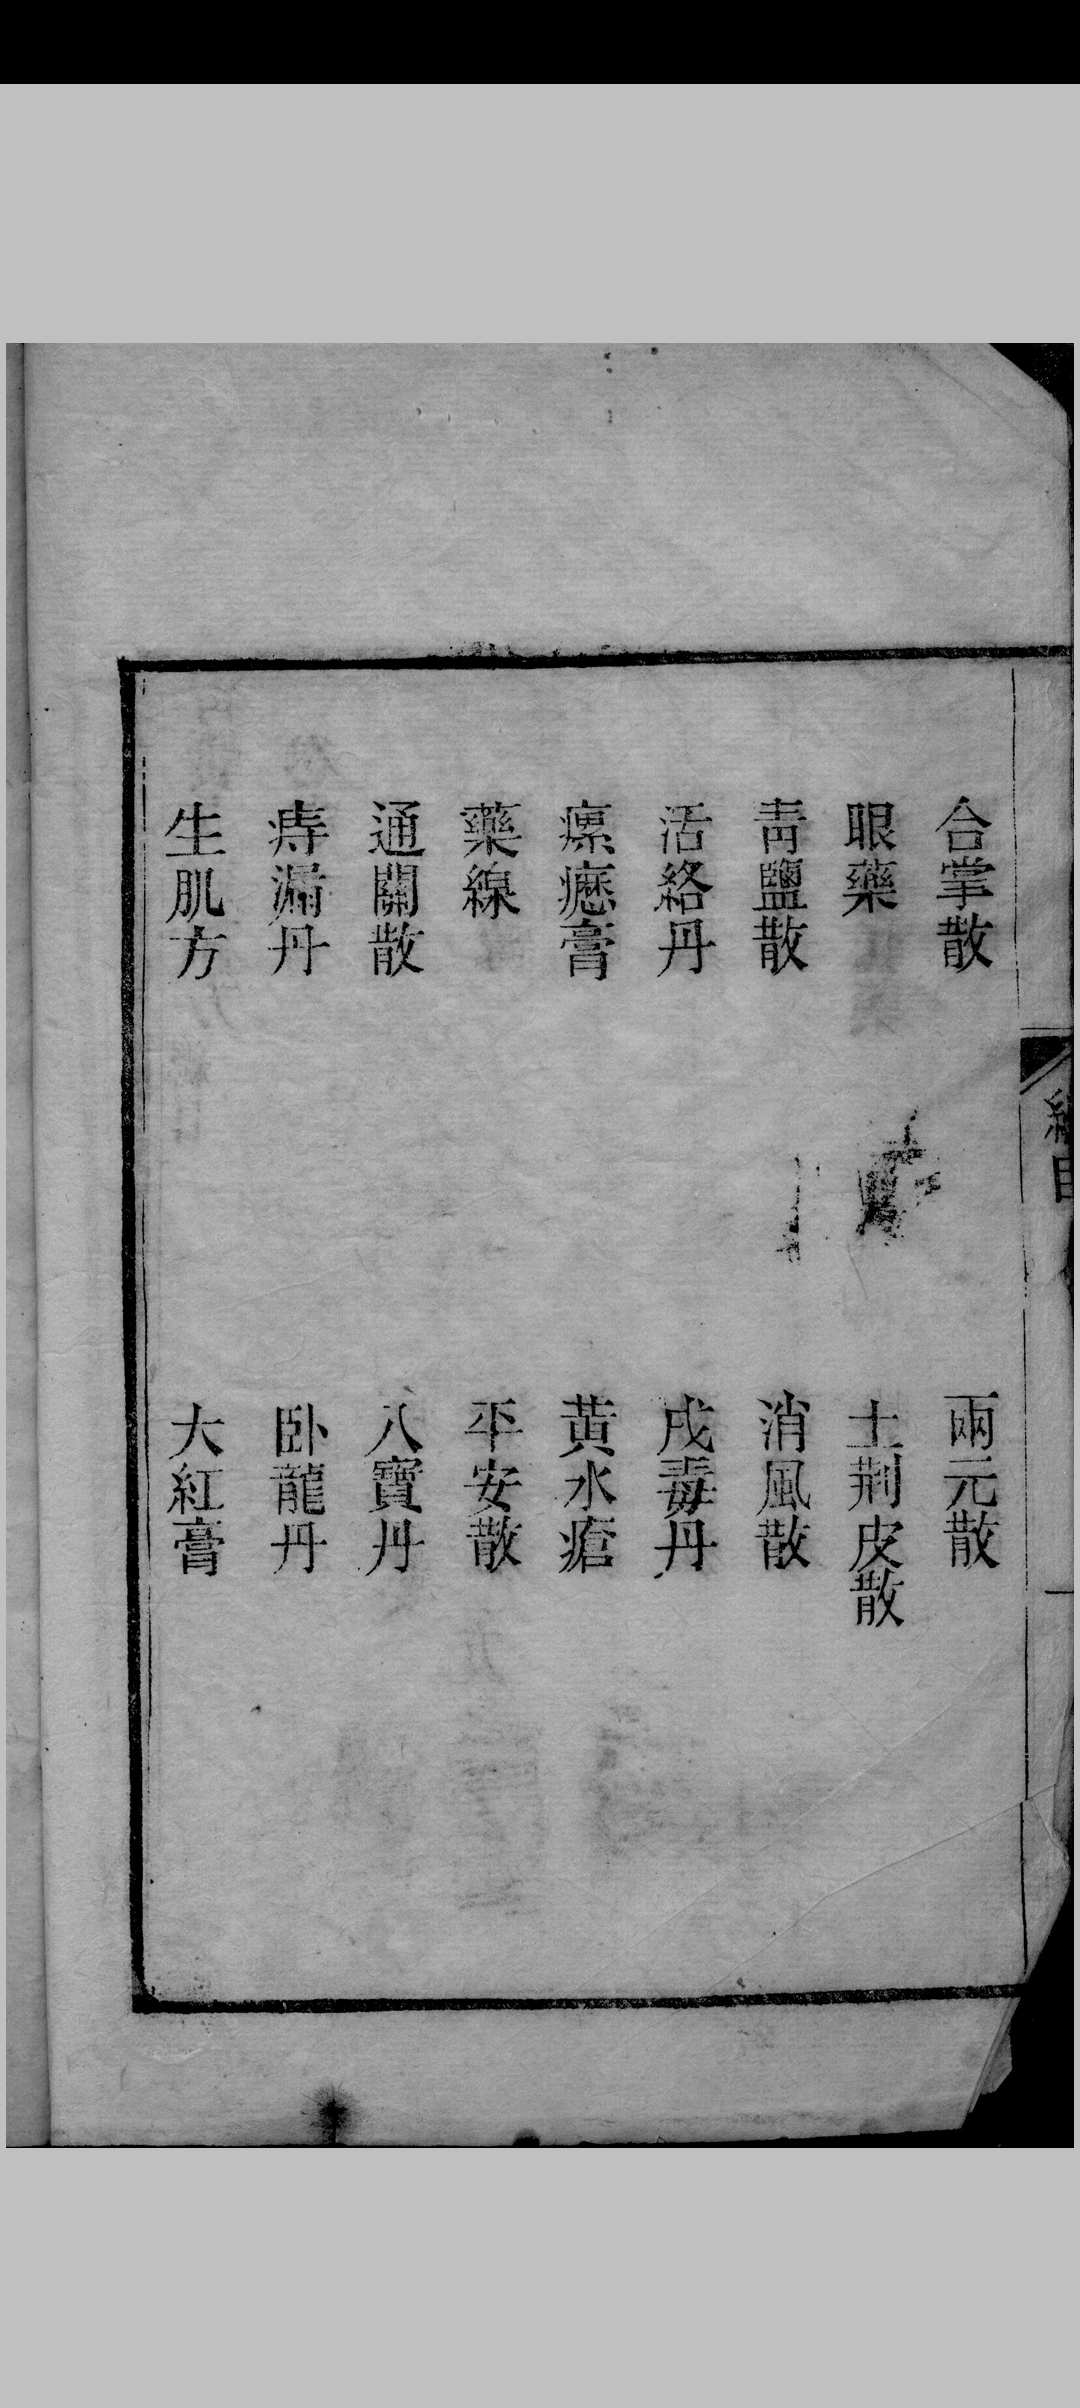 合掌散
兩元散
眼藥
土荆皮散
青鹽散
消風散
活絡丹
戌毒丹
瘰癧膏
黃水瘡
藥線
平安散
通關散
八寶丹
痔漏丹
卧龍丹
生肌方
大紅膏